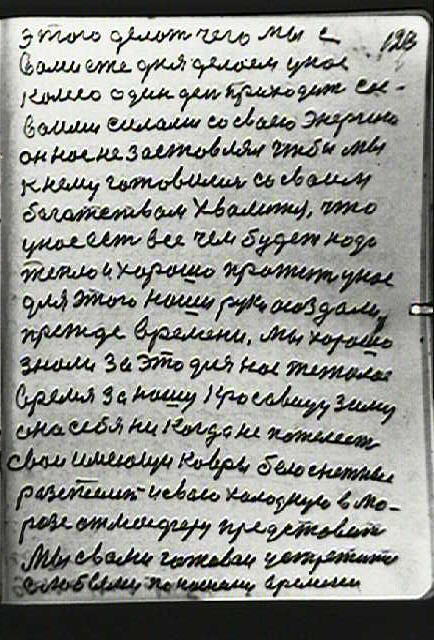 этого делат чего мы с 128
Вами еже дня делаем у нас
колесо один ден приходит со-
своими силами со своею Энергию
он нас не заставлял чтобы мы
к нему готовилис со своим
богатством хвалится, что
у нас ест все чем будет надо
тепло и хорошо прожит у нас
для этого наши руки создали,
прежде времени. мы хорошо
знали за это для нас тяжолое
время за нашу красавицу зиму
она себя ни когда не пожелеет
свои имеющи ковры белоснежные
разстелит и свою холодную в мо-
розе атмосферу представит
Мы с вами готовы устретит
с любвями по нашему времени